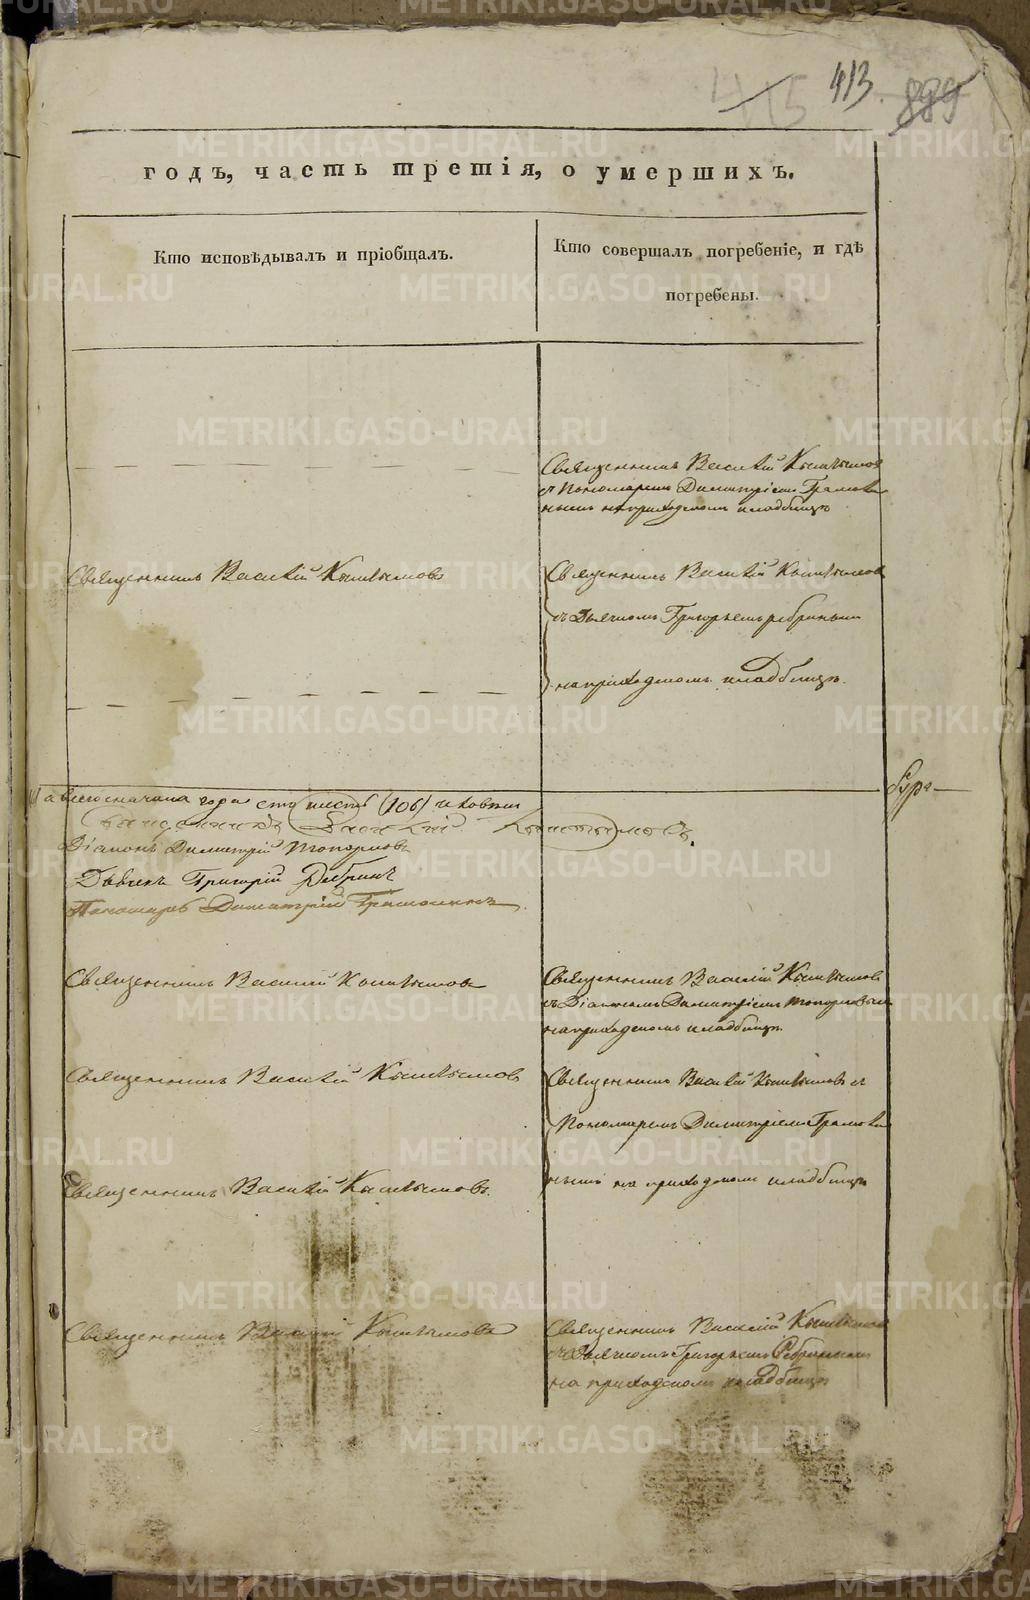 415 413. 889
годъ, часть третія, о умершихъ.
Кто исповѣдывалъ и пріобщалъ.
Кто совершалъ погребеніе, и гдѣ
погребены.
Священникъ Василій Кыштымов
съ Пономаремъ Димитріемъ Грамоли
нымъ на приходскомъ кладбищѣ
Священникъ Василій Кыштымовъ
Священникъ Василій Кыштымов
съ Дьячкомъ Григорьемъ Ребринымъ
на приходскомъ кладбищѣ.
года сто шесть (106)
Священникъ Василий Кыштымовъ.
Діаконъ Димитрій Топорковъ
Дьячекъ Григорій Ребринъ
Пономарь Димитрій Грамолинъ.
Священникъ Василій Кыштымовъ
Священникъ Василій Кыштымовъ
съ Діакономъ Димитріемъ Топорковымъ
на приходскомъ кладбищѣ.
Священникъ Василій Кыштымовъ
Священникъ Василій Кыштымовъ съ
Пономаремъ Димитріемъ Грамоли
нымъ на приходскомъ кладбищѣ
Священникъ Василій Кыштымовъ.
Священникъ Василій Кыштымовъ
Священникъ Василій Кыштымов
съ Дьячкомъ Григорьемъ Ребринымъ
на приходскомъ кладбищѣ
METRIKI.GASO-URAL.RU